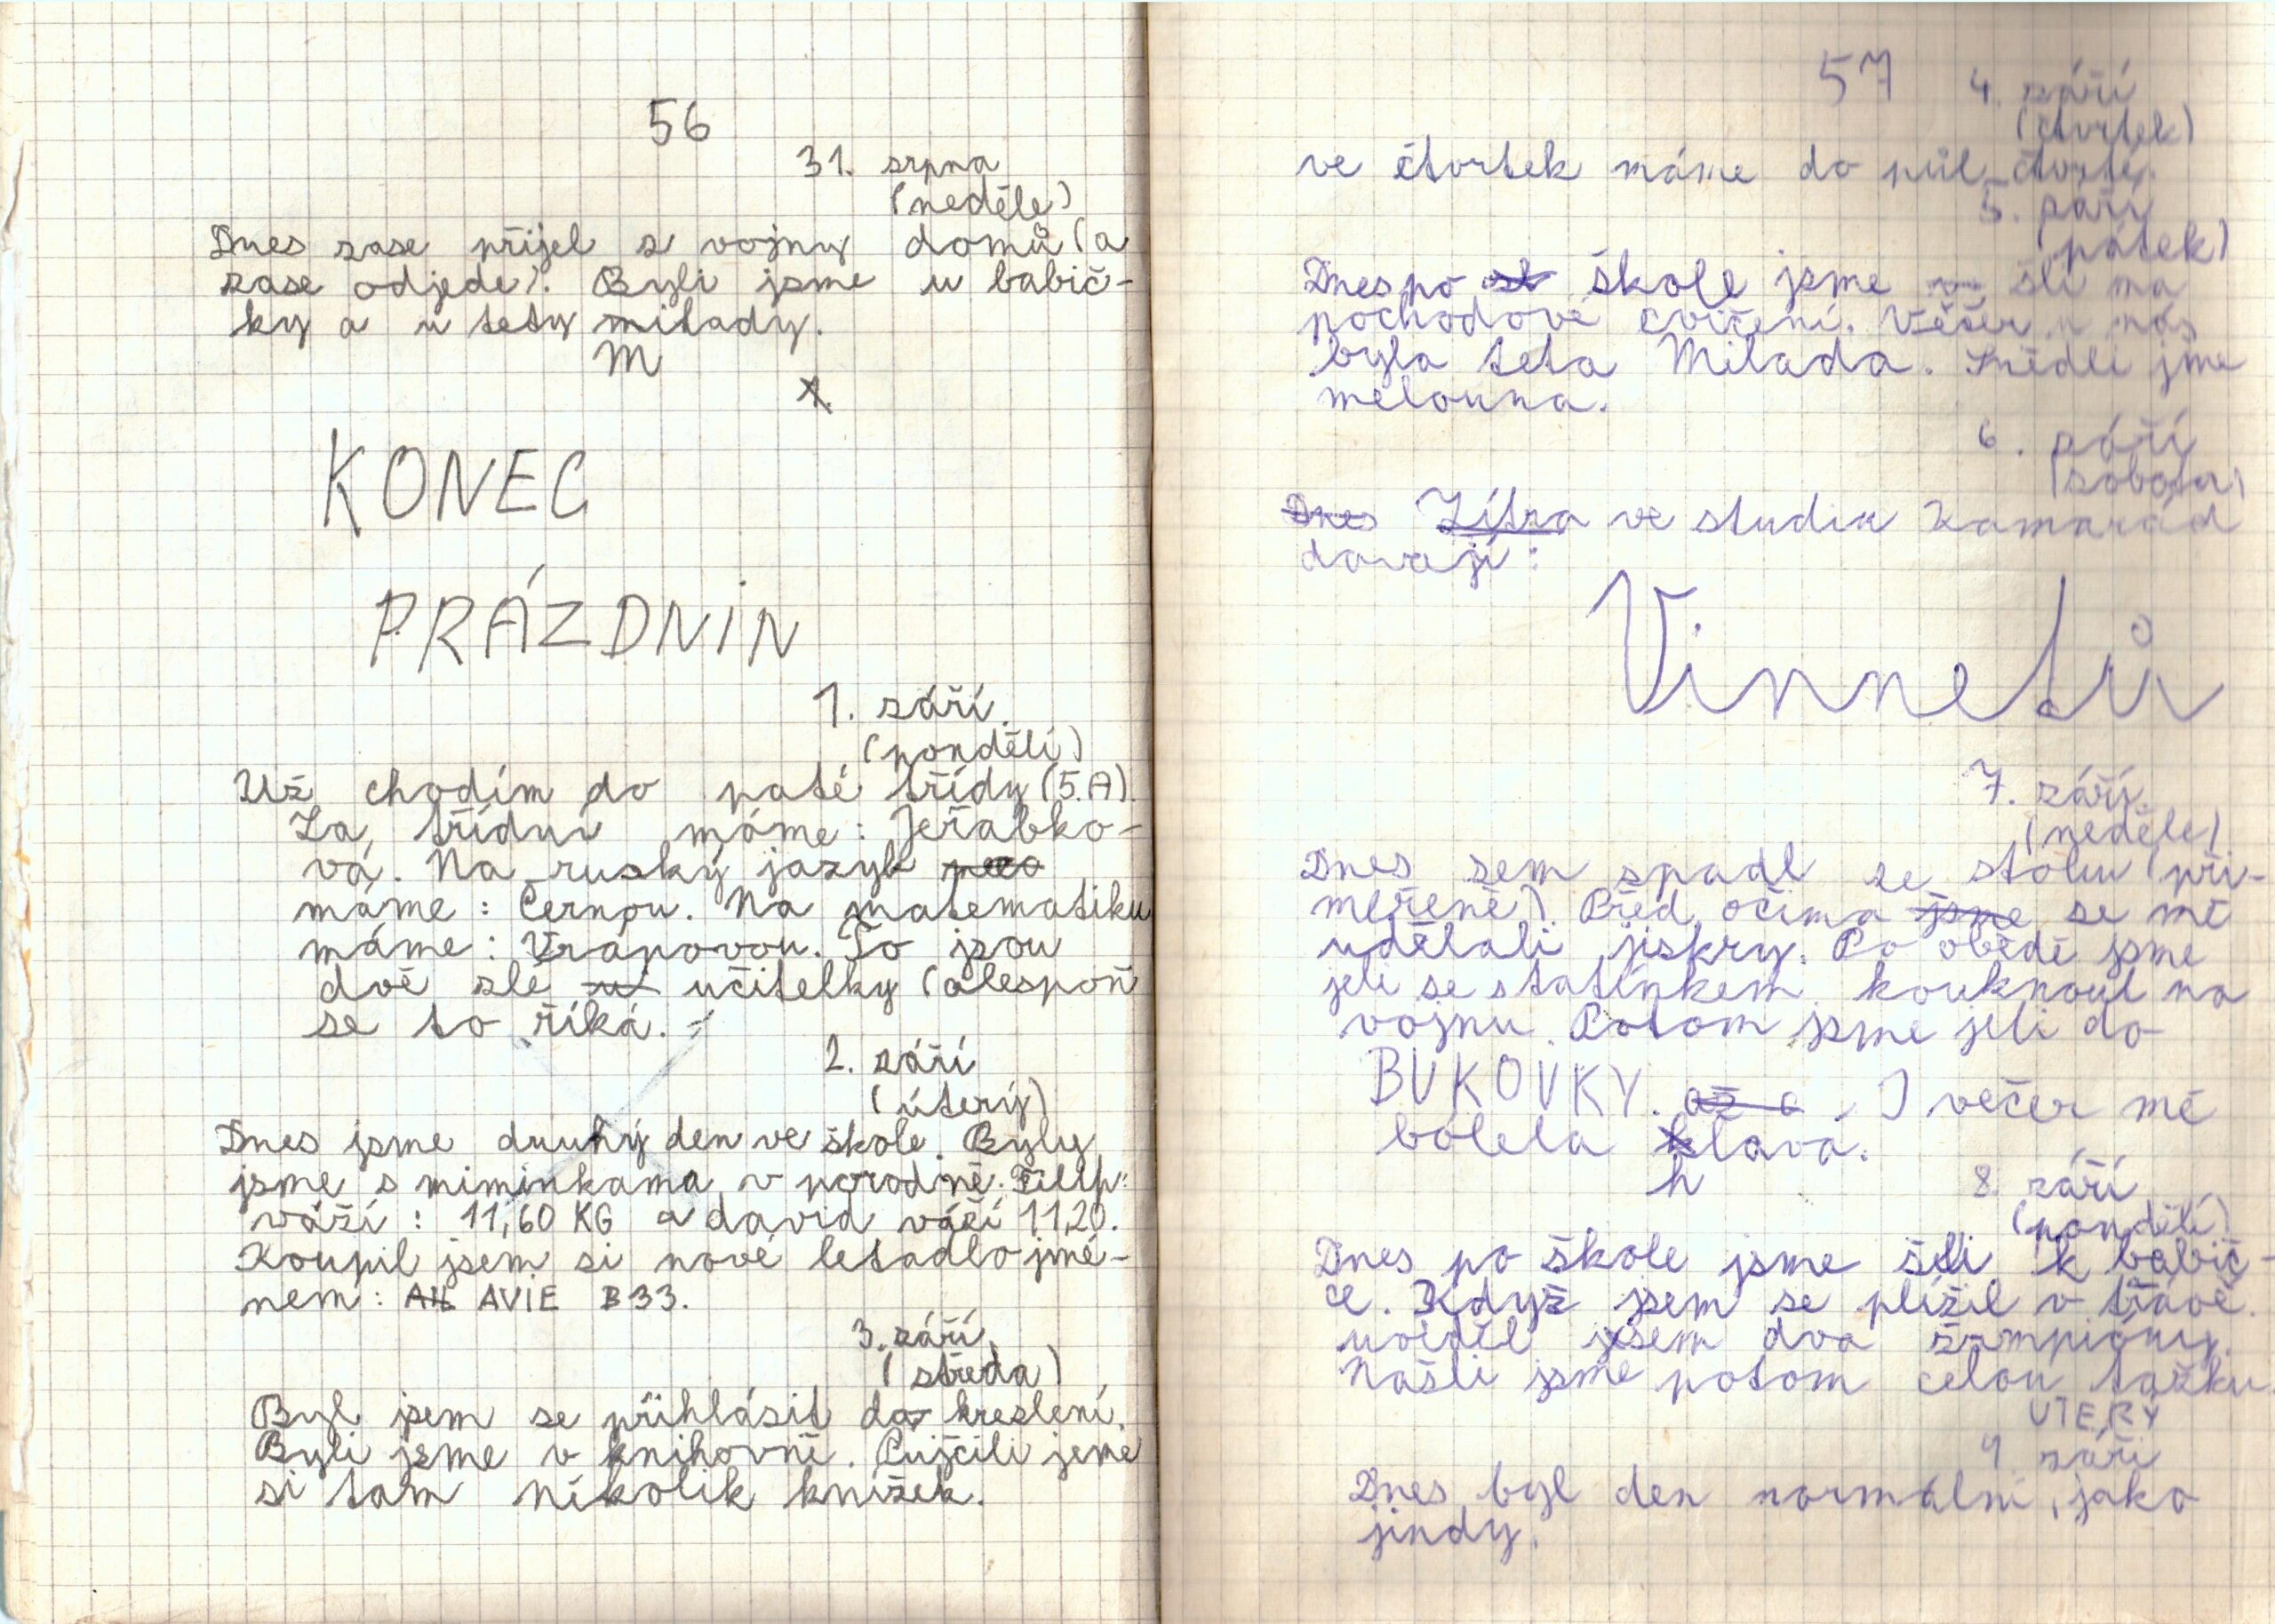 56
31. srpna
(neděle)
Dnes zase přijel z vojny domů (a
zase odjede). Byli jsme u babič-
ky a u tety milady.
M
KONEC
PRÁZDNIN
1. září
(pondělí)
Už chodím do paté třídy (5.A).
Za třídní máme: Jeřábko-
vá. Na ruský jazyk
máme: Černou. Na matematiku
máme: Vránovou. To jsou
dvě zlé učitelky (alespoň
se to říká.
2. září
(úterý)
Dnes jsme druhý den ve škole. Byly
jsme s miminkama v porodně. Filip
váží: 11,60 KG a david váží 11,20.
Koupil jsem si nové letadlo jmé-
nem: AVIE B33.
3. září
(středa)
Byl jsem se přihlásit do kreslení.
Byli jsme v knihovně. Pujčili jsme
si tam několik knížek.
57
4. září
(čtvrtek)
ve čtvrtek máme do půl čtvrté.
5. září
(pátek)
Dnes po škole jsme šli na
pochodové cvičení. Večer u nás
byla teta Milada. Snědli jsme
melouna.
6. září
(sobota)
Dnes Zítra ve studiu Kamarád
davají:
Vinnetů
7. září
(neděle)
Dnes sem spadl ze stolu (při-
meřeně). Před očima jsme se mě
udělali jiskry. Po obědě jsme
jeli se statínkem kouknout na
vojnu. Potom jsme jeli do
BUKOVKY. až a . I večer mě
bolela klava.
h
8. září
(pondělí)
Dnes po škole jsme šli k babič-
ce. Když jsem se plížil v trávě.
uviděl jsem dva žampióny.
Našli jsme potom celou tažku.
UTERÝ
9. září
Dnes byl den normální, jako
jindy.